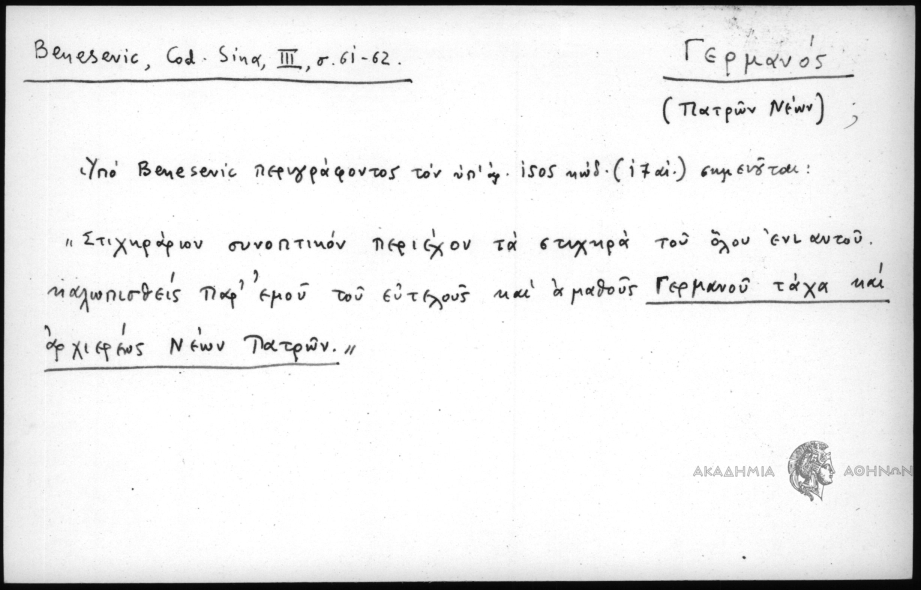 Benesevic, Cod. Sina, III, σ. 61-62.
Γερμανός
(Πατρῶν Νέων) ;
Ὑπό Benesevic περιγράφοντος τόν ὑπ' ἀρ. 1505 κώδ. (17 αἰ.) σημειοῦται:
"Στιχηράριον συνοπτικόν περιέχον τά στιχηρά τοῦ ὅλου ἐνιαυτοῦ.
καλωπισθείς παρ' ἐμοῦ τοῦ εὐτελοῦς καί ἀμαθοῦς Γερμανοῦ τάχα καί
ἀρχιερέως Νέων Πατρῶν."
ΑΚΑΔΗΜΙΑ ΑΘΗΝΩΝ